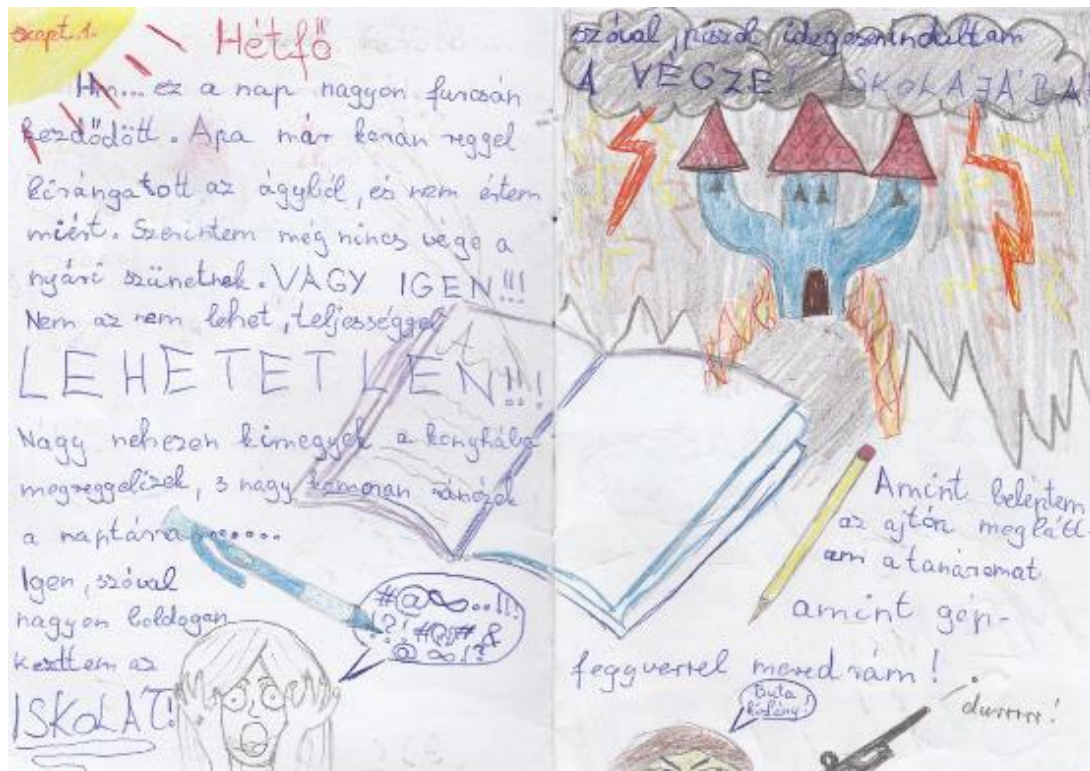 szept. 1.
Hétfő
Hm... ez a nap nagyon furcsán
kezdődött. Apa már korán reggel
kirángatott az ágyból, és nem értem
miért. Szerintem még nincs vége a
nyári szünetnek. VAGY IGEN!!!
Nem az nem lehet, teljességgel
LEHETETLEN!!!
Nagy nehezen kimegyek a konyhába
megreggelizek, s nagy komoran ránézek
a naptárra......
Igen, szóval
nagyon boldogan
kezttem az
ISKOLÁT!
#@∞..!!!
!?!#@#&
@∞!?
szóval, piszok idegesen indultam
A VÉGZET ISKOLÁJÁBA
Amint beléptem
az ajtón meglátt
am a tanáromat
amint gép-
feggyverrel mered rám!
Buta
kislány!
durrrr!